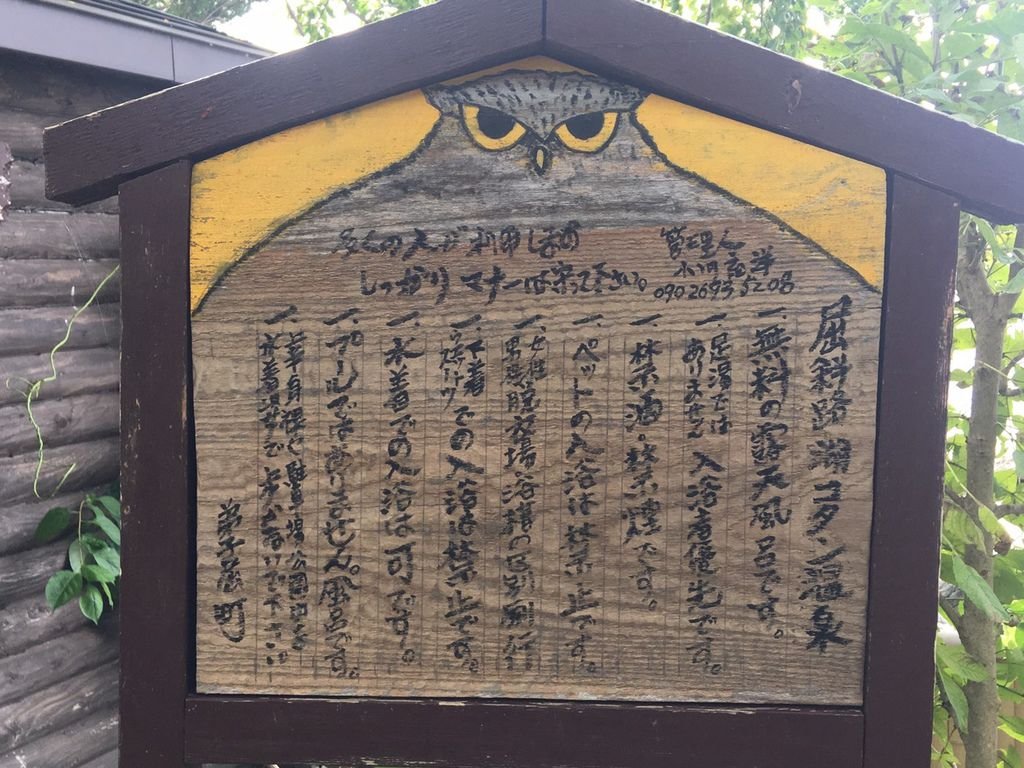 多くの人が利用します
しっかりマナーは守って下さい。
管理人
090 2693 5208
屈斜路湖コタン温泉
一、無料の露天風呂です。
一、足湯では
ありません 入浴者優先です。
一、禁酒。禁煙です。
一、ペットの入浴は禁止です。
一、女性
男性 脱衣場浴槽の区別励行
一、下着
での入浴は禁止です。
一、水着での入浴は可です。
一、プールでは有りません。風呂です。
一、半身裸で駐車場公園内を
水着
弟子屈町